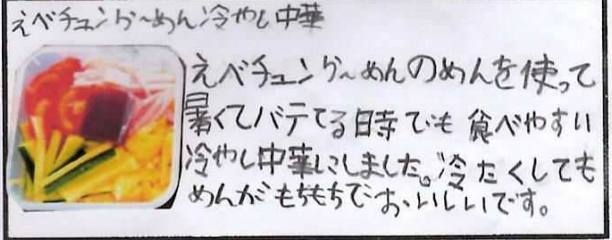 えべチュンゲ〜めん冷やし中華
えべチュンゲ〜めんのめんを使って
暑くてバテてる時でも食べやすい
冷やし中華にしました。冷たくしても
めんがもちもちでおいしいです。